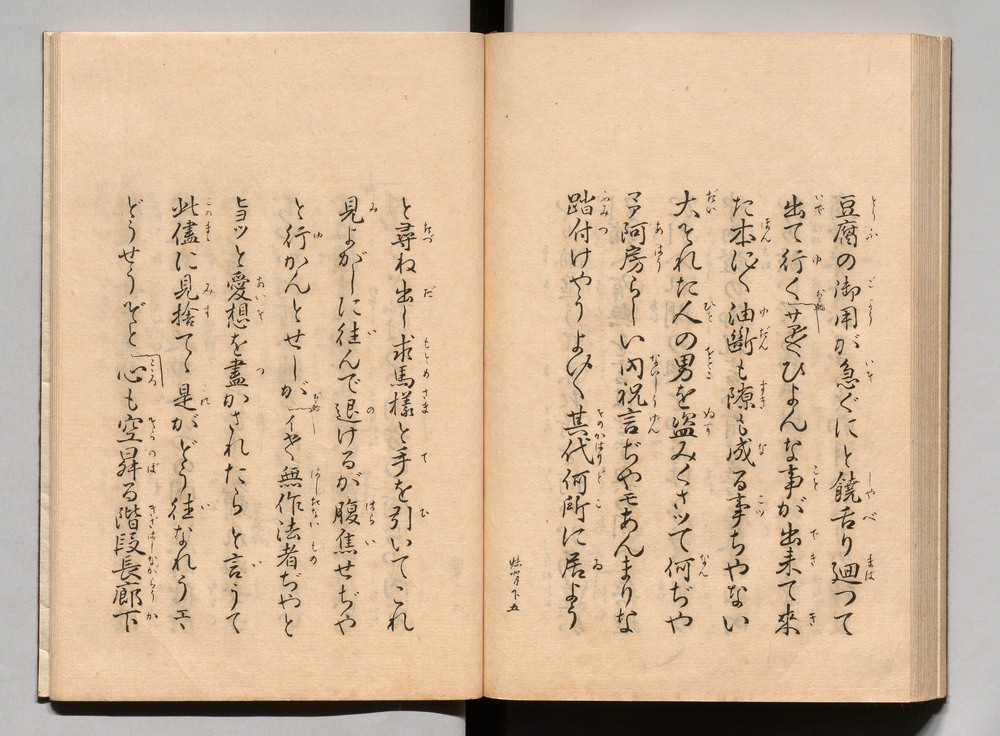 豆腐の御用が急ぐにと饒舌り廻つて
出て行く サアひよんな事が出来て來
た本に〱油斷も隙も成る事ぢやない
大それた人の男を盜みくさッて何ぢや
アヽ阿房らしい内祝言ぢやモあんまりな
踏付けやうよい〱其代何所に居よう
と尋ね出し求馬様と手を引いてこれ
見よがしに徃んで退けるが腹焦せぢや
と行かんとせしが イヤ〱無作法者ぢやと
ヒョッと愛想を盡かされたらと言うて
此儘に見捨てヽ是がどう徃なれうエヽ
どうせうぞと 心も空昇る階段長廊下
妹背下五